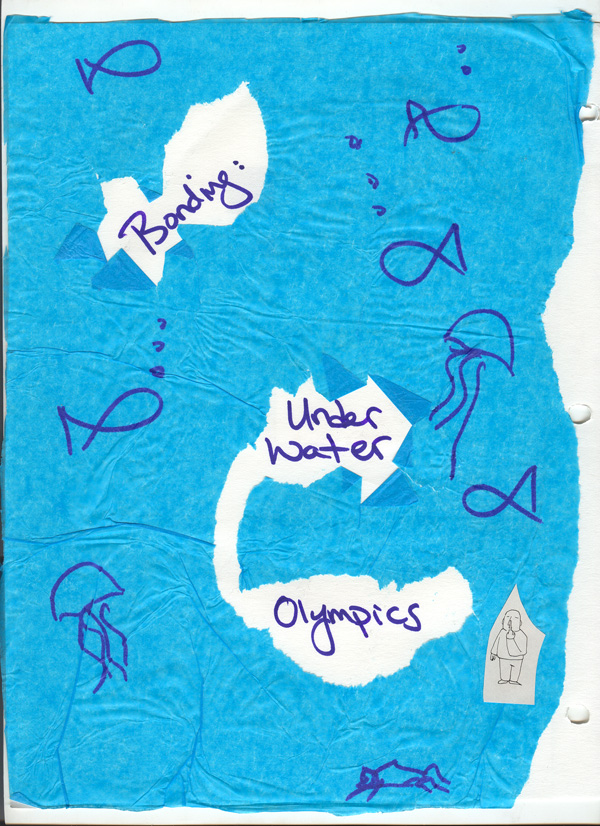 Bonding:
Under
Water
Olympics